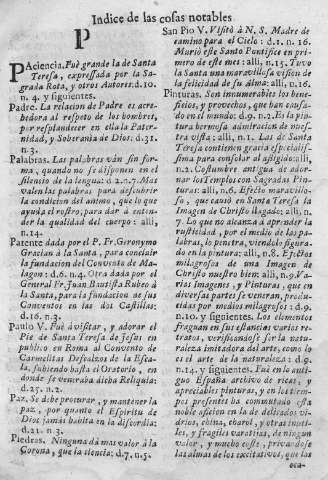 Indice de las cosas notables
P
PAciencia. Fuè grande la de Santa
Teresa, expressada por la Sa-
grada Rota, y otros Autores: d.10.
n. 4. y siguientes.
Padre. La relacion de Padre es acre-
hedora al respeto de los hombres,
por resplandecer en ella la Pater-
nidad, y Soberania de Dios: d.31.
n.3.
Palabras. Las palabras vàn sin for-
ma, quando no se disponen en el
silencio de la lengua: d.2. n.7. Mas
valen las palabras para descubrir
la condicion del animo, que lo que
ayuda el rostro, para dar à enten-
der la qualidad del cuerpo: alli,
n.14.
Patente dada por el P. Fr. Geronymo
Gracian à la Santa, para concluir
la fundacion del Convento de Ma-
lagon: d.6. n.4. Otra dada por el
General Fr. Juan Bautista Rubeo à
la Santa, para la fundacion de sus
Conventos en las dos Castillas:
d.16. n.3.
Paulo V. Fuè à visitar, y adorar el
Pie de Santa Teresa de Jesus en
publico en Roma al Convento de
Carmelitas Descalzos de la Esca-
la, subiendo hasta el Oratorio, en
donde se venerava dicha Reliquia:
d.25. n.2.
Paz. Se debe procurar, y mantener la
paz, por quanto el Espiritu de
Dios jamàs habita en la discordia:
d.21. n.3.
Piedras. Ninguna dà mas valor à la
Corona, que la ciencia: d.7. n.5.
San Pio V. Visitò à N. S. Madre de
camino para el Cielo: d.1. n.16.
Muriò este Santo Pontifice en pri-
mero de este mes: alli, n.15. Tuvo
la Santa una maravillosa vision de
la felicidad de su Alma: alli, n.16.
Pinturas. Son innumerables los bene-
ficios, y provechos, que han causa-
do en el mundo: d.9. n.2. Es la pin-
tura hermosa admiracion de nues-
tra vista: alli, n.1. Las de Santa
Teresa contienen gracia especialis-
sima para consolar al afligido: alli,
n.2. Costumbre antigua de ador-
nar los Templos con Sagradas Pin-
turas: alli, n.6. Efecto maravillo-
so, que causò en Santa Teresa la
Imagen de Christo llagado: alli, n.
7. Lo que no alcanza à aprender la
rusticidad, por el medio de las pa-
labras, lo penetra, viendolo figura-
do en la pintura: alli, n.8. Efectos
milagrosos de una Imagen de
Christo nuestro bien: alli, n.9. Va-
rias Imagenes, y Pinturas, que en
diversas partes se veneran, produci-
das por medios milagrosos: d.9.
n.10. y siguientes. Los elementos
fraguan en sus estancias varios re-
tratos, verificandose ser la natura-
leza imitadora del arte, como lo
es el arte de la naturaleza: d.9.
n.14. y siguientes. Fuè en lo anti-
guo España archivo de ricas, y
apreciables pinturas, y en los tiem-
pos presentes ha commutado esta
noble aficion en la de delicados vi-
drios, china, charol, y otras inuti-
les, y fragiles varatijas, de ningun
valor, y mucho coste, privandose
las almas de los excitativos, que las
oca-